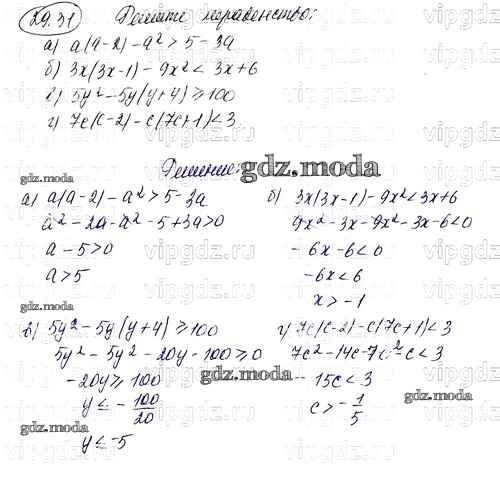 29.31 Решите неравенство:
а) a(a-2) - a² > 5 - 3a
б) 3x(3x-1) - 9x² < 3x+6
в) 5y² - 5y(y+4) ≥ 100
г) 7c(c-2) - c(7c+1) < 3
Решение:
gdz.moda
а) a(a-2) - a² > 5 - 3a
a² - 2a - a² - 5 + 3a > 0
a - 5 > 0
a > 5
б) 3x(3x-1) - 9x² < 3x+6
9x² - 3x - 9x² - 3x - 6 < 0
- 6x - 6 < 0
-6x < 6
x > -1
в) 5y² - 5y(y+4) ≥ 100
5y² - 5y² - 20y - 100 ≥ 0
-20y ≥ 100
y ≤ - 100/20
y ≤ -5
г) 7c(c-2) - c(7c+1) < 3
7c² - 14c - 7c² - c < 3
- 15c < 3
c > - 1/5
gdz.moda
gdz.moda
gdz.moda
gdz.moda
vipgdz.ru